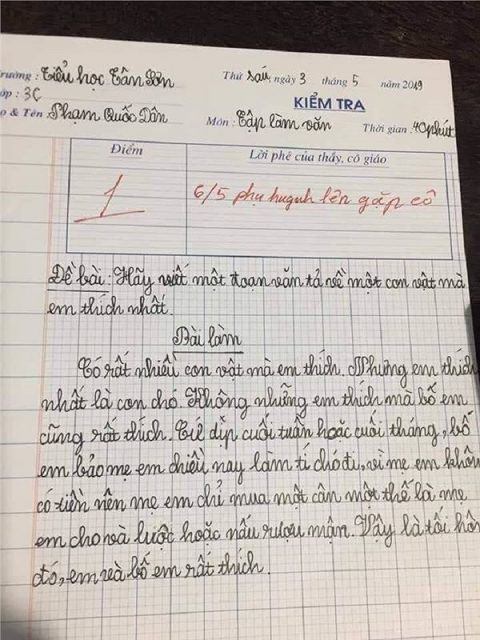 rường : Tiểu học Tân Sơn Thứ sáu, ngày 3 tháng 5 năm 2019
ớp : 3C KIỂM TRA
ọ & Tên : Phạm Quốc Dân Môn : Tập làm văn Thời gian : 40 phút
Điểm Lời phê của thầy, cô giáo
1 6/5 phụ huynh lên gặp cô
Đề bài: Hãy viết một đoạn văn tả về một con vật mà
em thích nhất.
Bài làm
Có rất nhiều con vật mà em thích. Nhưng em thích
nhất là con chó. Không những em thích mà bố em
cũng rất thích. Cứ dịp cuối tuần hoặc cuối tháng, bố
em bảo mẹ em chiều nay làm tí chó đi, vì mẹ em khôn
có tiền nên mẹ em chỉ mua một cân một thế là mẹ
em cho và luộc hoặc nấu rượu mận. Vậy là tối hôm
đó, em và bố em rất thích.